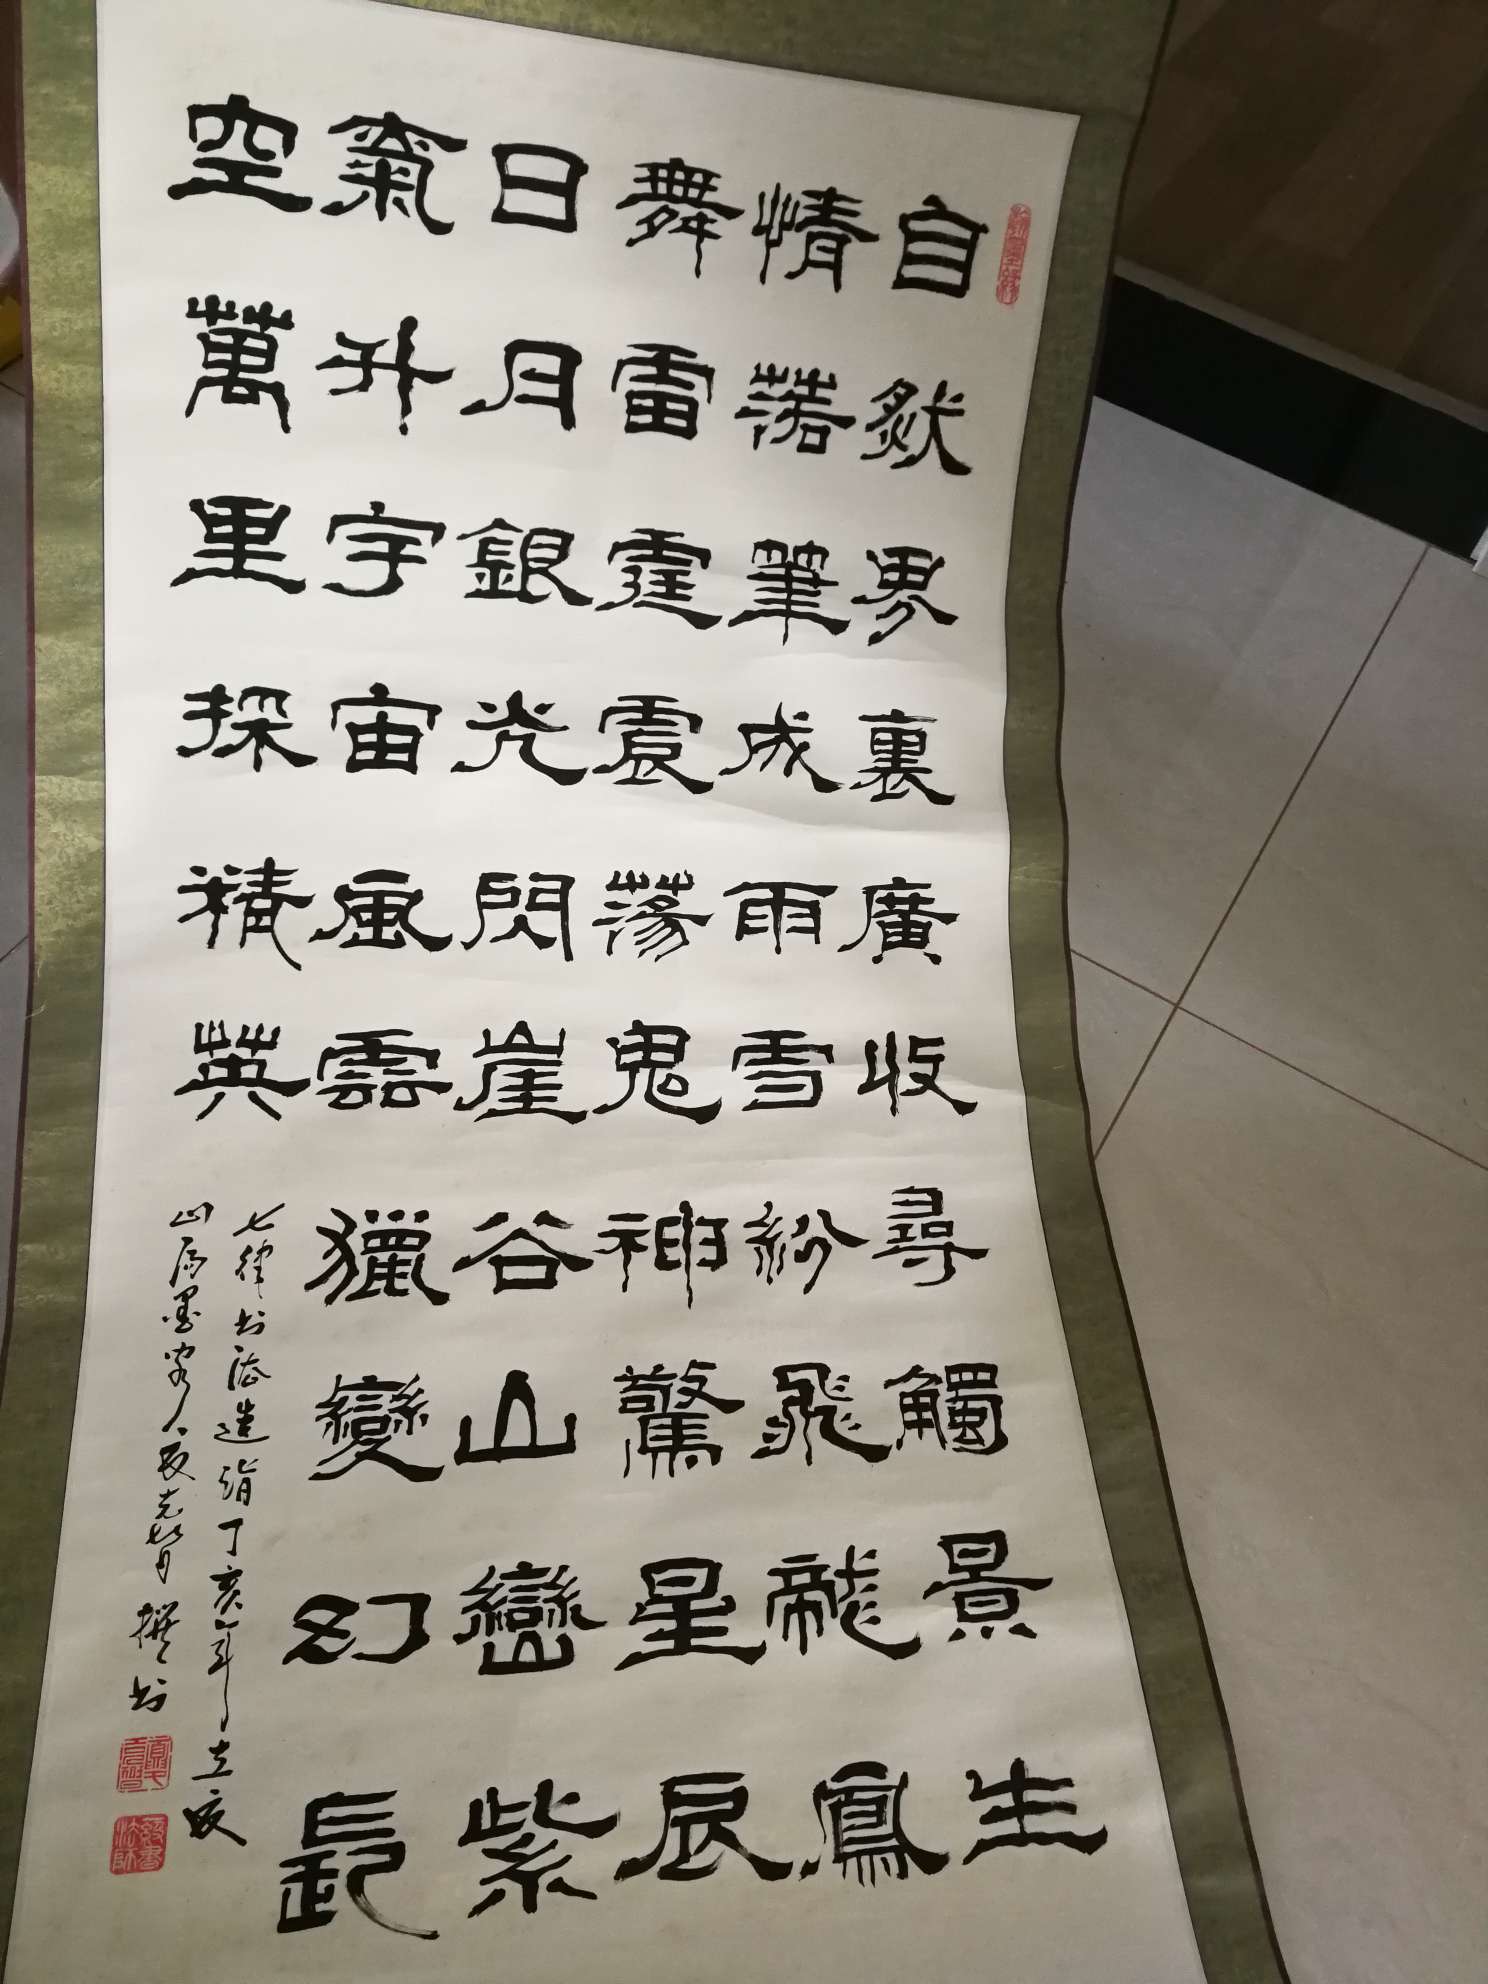 自然界裏廣收尋觸景生
情落筆成雨雪紛飛龍鳳
舞雷霆震蕩鬼神驚星辰
日月銀光閃崖谷山巒紫
氣升宇宙風雲獵變幻長
空萬里探精英
七律 書法造詣 丁亥年立夏
山居墨客 段志賢 撰書